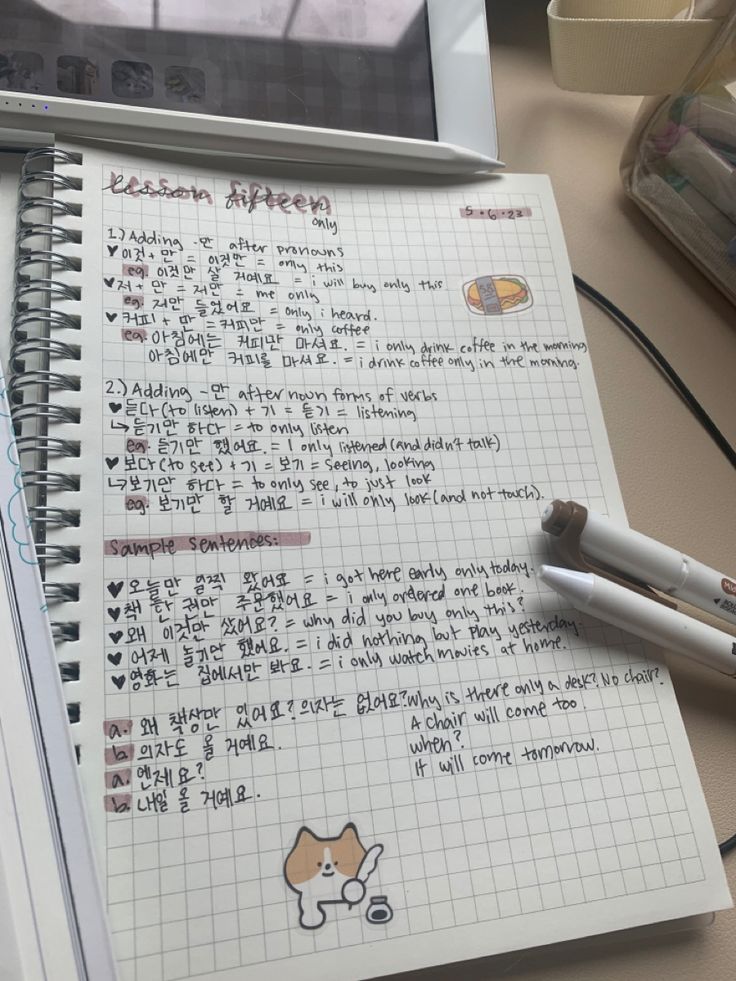 lesson fifteen
only
5.6.23
1.) Adding -만 after pronouns
♥ 이것 + 만 = 이것만 = only this
eg. 이것만 살 거예요 = i will buy only this
♥ 저 + 만 = 저만 = me only
eg. 저만 들었어요 = only i heard.
♥ 커피 + 만 = 커피만 = only coffee
eg. 아침에는 커피만 마셔요. = i only drink coffee in the morning
아침에만 커피를 마셔요. = i drink coffee only in the morning.
2.) Adding -만 after noun forms of verbs
♥ 듣다 (to listen) + 기 = 듣기 = listening
↳ 듣기만 하다 = to only listen
eg. 듣기만 했어요. = I only listened (and didn't talk)
♥ 보다 (to see) + 기 = 보기 = seeing, looking
↳ 보기만 하다 = to only see, to just look
eg. 보기만 할 거예요 = i will only look (and not touch).
Sample Sentences:
♥ 오늘만 일찍 왔어요 = i got here early only today.
♥ 책 한 권만 주문했어요 = i only ordered one book.
♥ 왜 이것만 샀어요? = why did you buy only this?
♥ 어제 놀기만 했어요. = i did nothing but play yesterday.
♥ 영화는 집에서만 봐요. = i only watch movies at home.
a. 왜 책상만 있어요? 의자는 없어요? Why is there only a desk? No chair?
b. 의자도 올 거예요. A chair will come too.
a. 언제요? when?
b. 내일 올 거예요. It will come tomorrow.